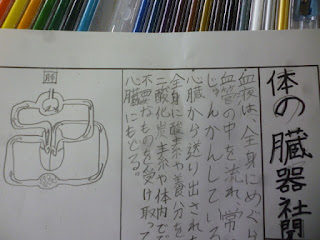 体の臓器新聞
血液は、全身にめぐら
血管の中を流れ、常
じゅんかんしている
心臓から送り出された
全身に酸素や養分を
二酸化炭素や体内で
不要なものを受け取って
心臓にもどる。